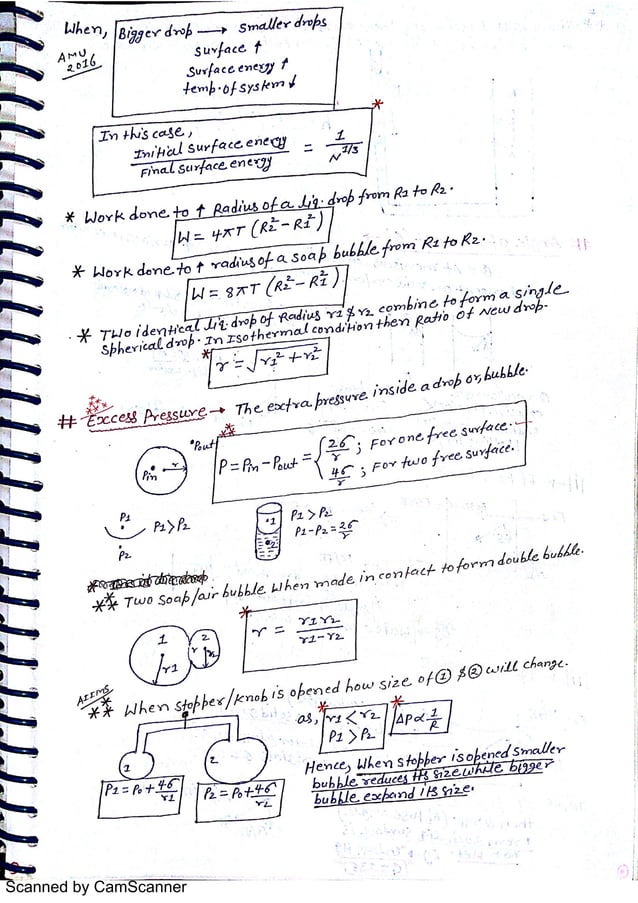 When, Bigger drop → Smaller drops
AMU 2016
Surface ↑
Surface energy ↑
temp. of system ↓
In this case,
Initial surface energy / Final surface energy = 1 / N^1/3
* Work done to ↑ Radius of a liq. drop from R1 to R2.
W = 4πT (R2² - R1²)
* Work done to ↑ radius of a soap bubble from R1 to R2.
W = 8πT (R2² - R1²)
* Two identical liq. drop of Radius r1 & r2 combine to form a single
Spherical drop. In Isothermal condition then Ratio of New drop.
* r = √r1² + r2²
# Excess Pressure → The extra pressure inside a drop or, bubble.
•Pout
Pin r
P = Pin - Pout = { 2σ/r ; For one free surface.
4σ/r ; For two free surface.
P1
P1 > P2
P2
•1
•2
P1 > P2
P1 - P2 = 2σ/r
** Two soap/air bubble when made in contact to form double bubble.
1 2
r1 r r2
* r = r1r2 / r1 - r2
AIIMS
** When stopper/knob is opened how size of ① & ② will change.
1 2
as, r1 < r2
P1 > P2
ΔP ∝ 1/R
P1 = P0 + 4σ/r1
P2 = P0 + 4σ/r2
Hence, When stopper is opened smaller
bubble reduces its size while bigger
bubble expand its size.
Scanned by CamScanner